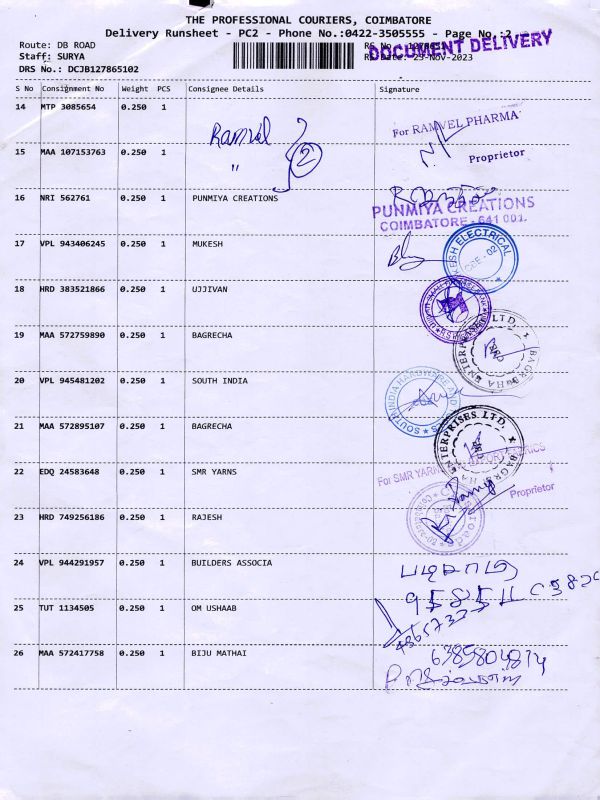 THE PROFESSIONAL COURIERS, COIMBATORE
Delivery Runsheet - PC2 - Phone No.:0422-3505555 - Page No.:2
Route: DB ROAD
Staff: SURYA
DRS No.: DCJB127865102
DOCUMENT DELIVERY
Date: 29-Nov-2023
S No Consignment No Weight PCS Consignee Details Signature
14 MTP 3085654 0.250 1 Ramvel
For RAMVEL PHARMA
15 MAA 107153763 0.250 1 " 2
Proprietor
16 NRI 562761 0.250 1 PUNMIYA CREATIONS
PUNMIYA CREATIONS
COIMBATORE - 641 001.
17 VPL 943406245 0.250 1 MUKESH
MUKESH ELECTRICAL
CBE - 02
18 HRD 383521866 0.250 1 UJJIVAN
19 MAA 572759890 0.250 1 BAGRECHA
BAGRECHA ENTERPRISES LTD.
20 VPL 945481202 0.250 1 SOUTH INDIA
SOUTH INDIA HARDWARE AND
21 MAA 572895107 0.250 1 BAGRECHA
BAGRECHA ENTERPRISES LTD.
22 EDQ 24583648 0.250 1 SMR YARNS
For SMR YARN
Proprietor
23 HRD 749256186 0.250 1 RAJESH
24 VPL 944291957 0.250 1 BUILDERS ASSOCIA
25 TUT 1134505 0.250 1 OM USHAAB
26 MAA 572417758 0.250 1 BIJU MATHAI
6385804814